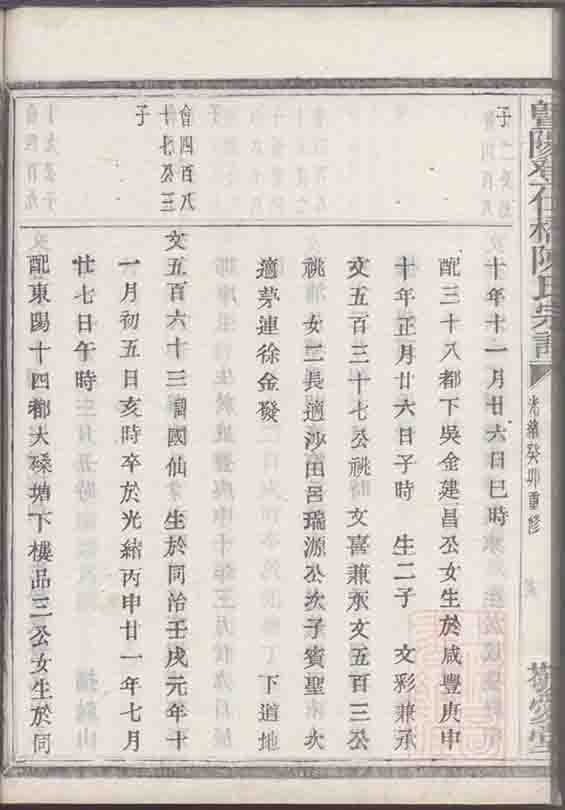 暨陽登仕橋陳氏宗譜
光緒癸卯重修
敬愛堂
十年十一月廿六日巳時
配三十八都下吳金建昌公女生於咸豐庚申
十年正月廿六日子時 生二子 文彩兼承
文五百三十七公祧 文喜兼承文五百三公
祧 女二長適沙田呂瑞源公次子賓聖 次
適茅連徐金發 下道地
會四百八
十七公三
子
文五百六十三諱國仙 生於同治壬戌元年十
一月初五日亥時卒於光緒丙申廿一年七月
廿七日午時
配東陽十四都大磉塘下樓品三公女生於同